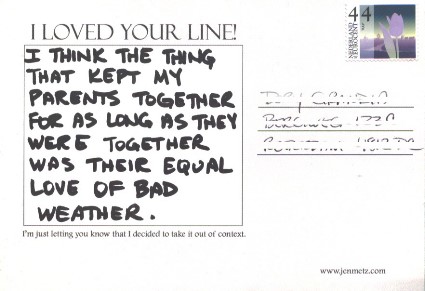 I LOVED YOUR LINE!
I THINK THE THING
THAT KEPT MY
PARENTS TOGETHER
FOR AS LONG AS THEY
WERE TOGETHER
WAS THEIR EQUAL
LOVE OF BAD
WEATHER.
I'm just letting you know that I decided to take it out of context.
44
NEDERLAND
EUROCENT
www.jenmetz.com